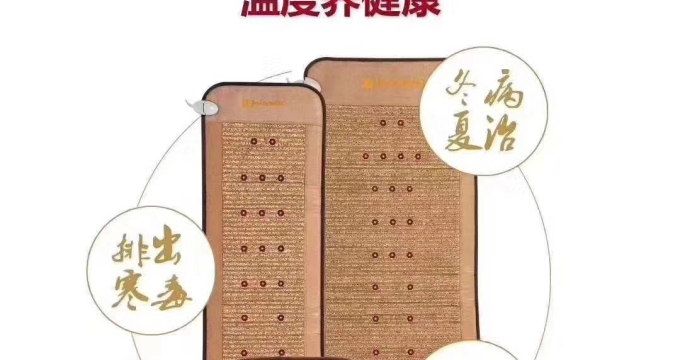 温度养健康
冬病
夏治
排出
寒毒